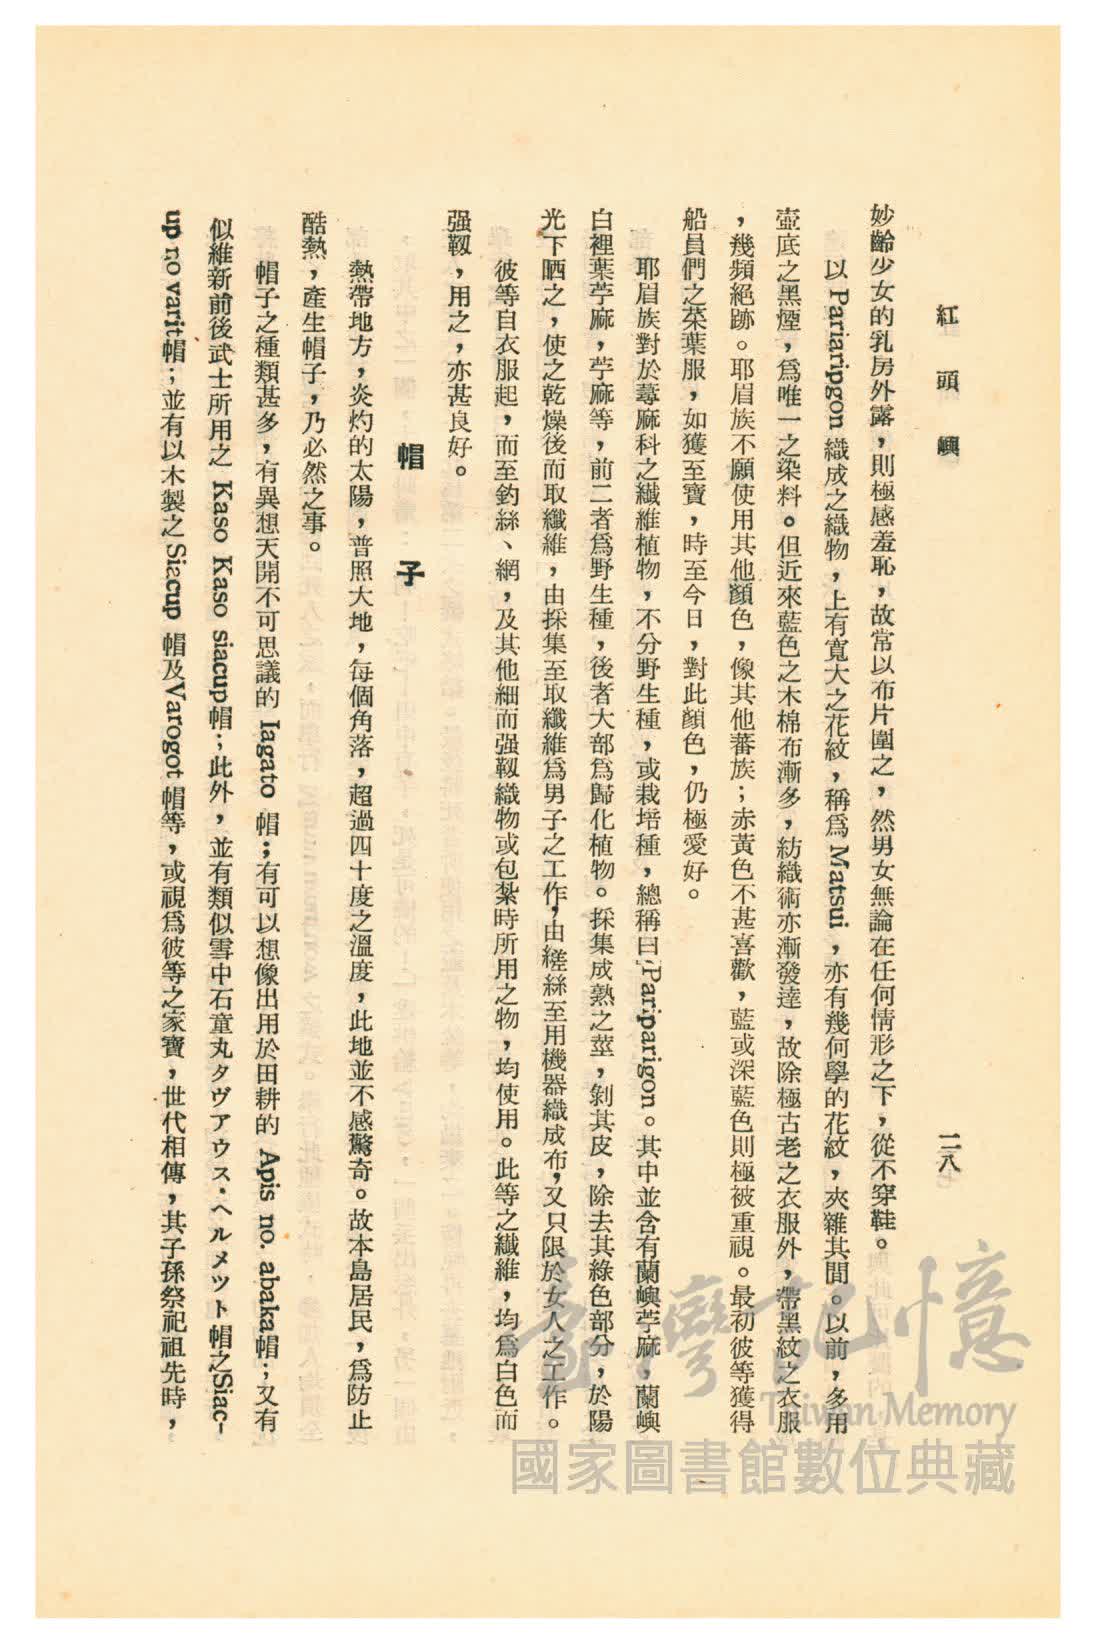 紅頭嶼
二八
妙齡少女的乳房外露，則極感羞恥，故常以布片圍之，然男女無論在任何情形之下，從不穿鞋。
以 Pariaripgon 織成之織物，上有寬大之花紋，稱爲 Matsui，亦有幾何學的花紋，夾雜其間。以前，多用
壺底之黑煙，爲唯一之染料。但近來藍色之木棉布漸多，紡織術亦漸發達，故除極古老之衣服外，帶黑紋之衣服
，幾頻絕跡。耶眉族不願使用其他顏色，像其他蕃族；赤黃色不甚喜歡，藍或深藍色則極被重視。最初彼等獲得
船員們之菜葉服，如獲至寶，時至今日，對此顏色，仍極愛好。
耶眉族對於蕁麻科之纖維植物，不分野生種，或栽培種，總稱曰 Pariparigon。其中並含有蘭嶼苧麻，蘭嶼
白裡葉苧麻，苧麻等，前二者爲野生種，後者大部爲歸化植物。採集成熟之莖，剝其皮，除去其綠色部分，於陽
光下晒之，使之乾燥後而取纖維，由採集至取纖維爲男子之工作，由縒絲至用機器織成布，又只限於女人之工作。
彼等自衣服起，而至釣絲、網，及其他細而强靱織物或包紮時所用之物，均使用。此等之纖維，均爲白色而
强靱，用之，亦甚良好。
帽子
熱帶地方，炎灼的太陽，普照大地，每個角落，超過四十度之溫度，此地並不感驚奇。故本島居民，爲防止
酷熱，產生帽子，乃必然之事。
帽子之種類甚多，有異想天開不可思議的 Iagato 帽；有可以想像出用於田耕的 Apis no. abaka帽；又有
似維新前後武士所用之 Kaso Kaso siacup帽；此外，並有類似雪中石童丸タヴアウス・ヘルメツト帽之Siac-
up no varit帽；並有以木製之Siacup 帽及Varogot 帽等，或視爲彼等之家寶，世代相傳，其子孫祭祀祖先時，
臺灣記憶
Taiwan Memory
國家圖書館數位典藏